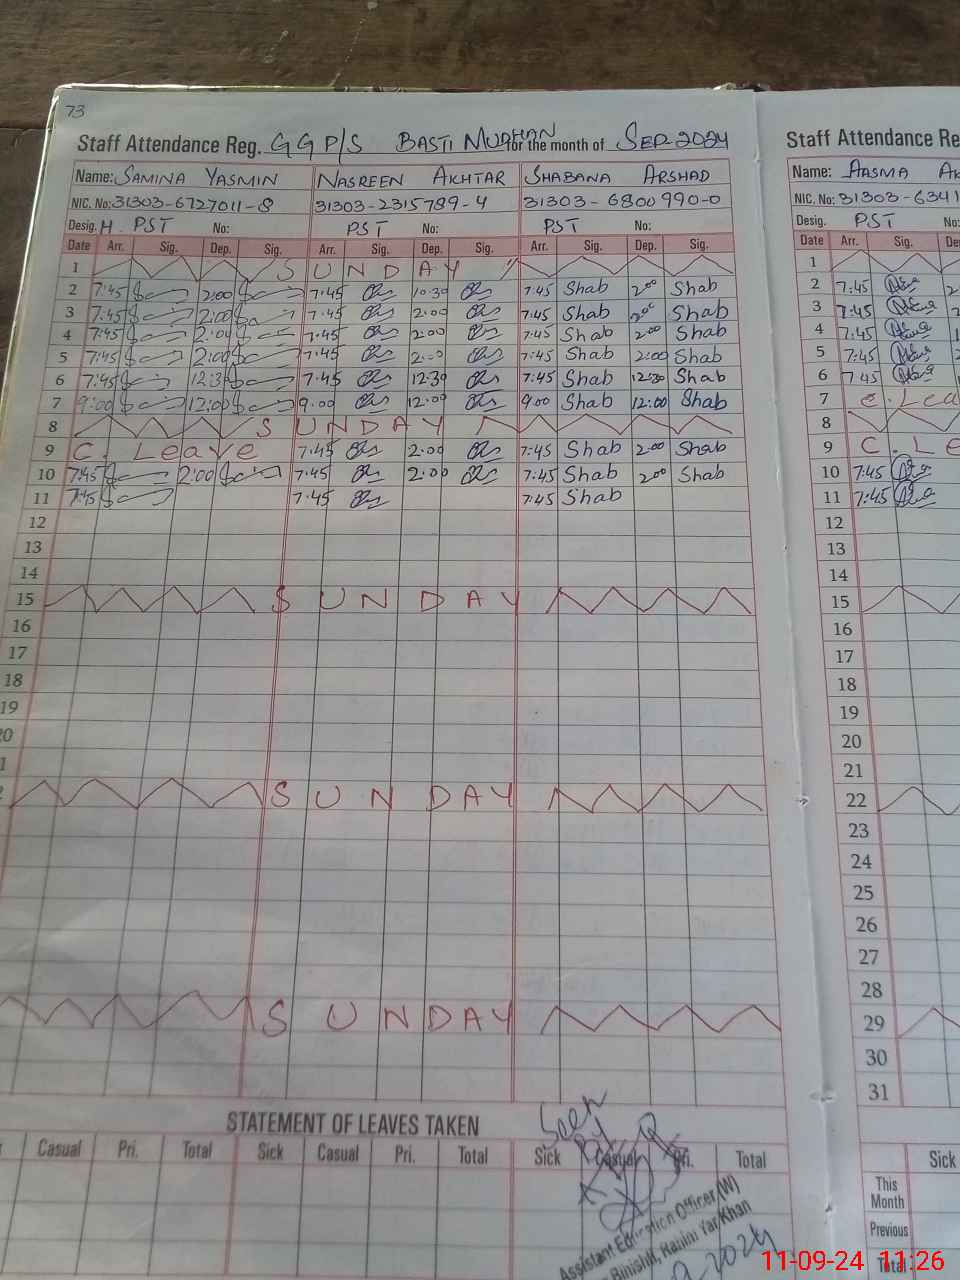 73
Staff Attendance Reg. GGP/S BASTI MUDHAN for the month of SEP 2024
Name: SAMINA YASMIN NASREEN AKHTAR SHABANA ARSHAD
NIC. No: 31303-6727011-8 31303-2315789-4 31303-6800990-0
Desig. H. PST No: PST No: PST No:
Date Arr. Sig. Dep. Sig. Arr. Sig. Dep. Sig. Arr. Sig. Dep. Sig.
1 SUNDAY
2 7:45 2:00 7:45 10:30 7:45 Shab 2:00 Shab
3 7:45 2:00 7:45 2:00 7:45 Shab 2:00 Shab
4 7:45 2:00 7:45 2:00 7:45 Shab 2:00 Shab
5 7:45 2:00 7:45 2:00 7:45 Shab 2:00 Shab
6 7:45 12:30 7:45 12:30 7:45 Shab 12:30 Shab
7 9:00 12:00 9:00 12:00 9:00 Shab 12:00 Shab
8 SUNDAY
9 C. Leave 7:45 2:00 7:45 Shab 2:00 Shab
10 7:45 2:00 7:45 2:00 7:45 Shab 2:00 Shab
11 7:45 7:45 7:45 Shab
12
13
14
15 SUNDAY
16
17
18
19
20
SUNDAY
SUNDAY
STATEMENT OF LEAVES TAKEN
Casual Pri. Total Sick Casual Pri. Total Sick Casual Pri. Total
Seen
Assistant Education Officer (W)
Rahim Yar Khan
2024
Staff Attendance Re
Name: AASMA
NIC. No: 31303-6341
Desig. PST No:
Date Arr. Sig.
1
2 7:45
3 7:45
4 7:45
5 7:45
6 7:45
7
8
9 C. Le
10 7:45
11 7:45
12
13
14
15
16
17
18
19
20
21
22
23
24
25
26
27
28
29
30
31
Sick
This Month
Previous
Total
11-09-24 11:26